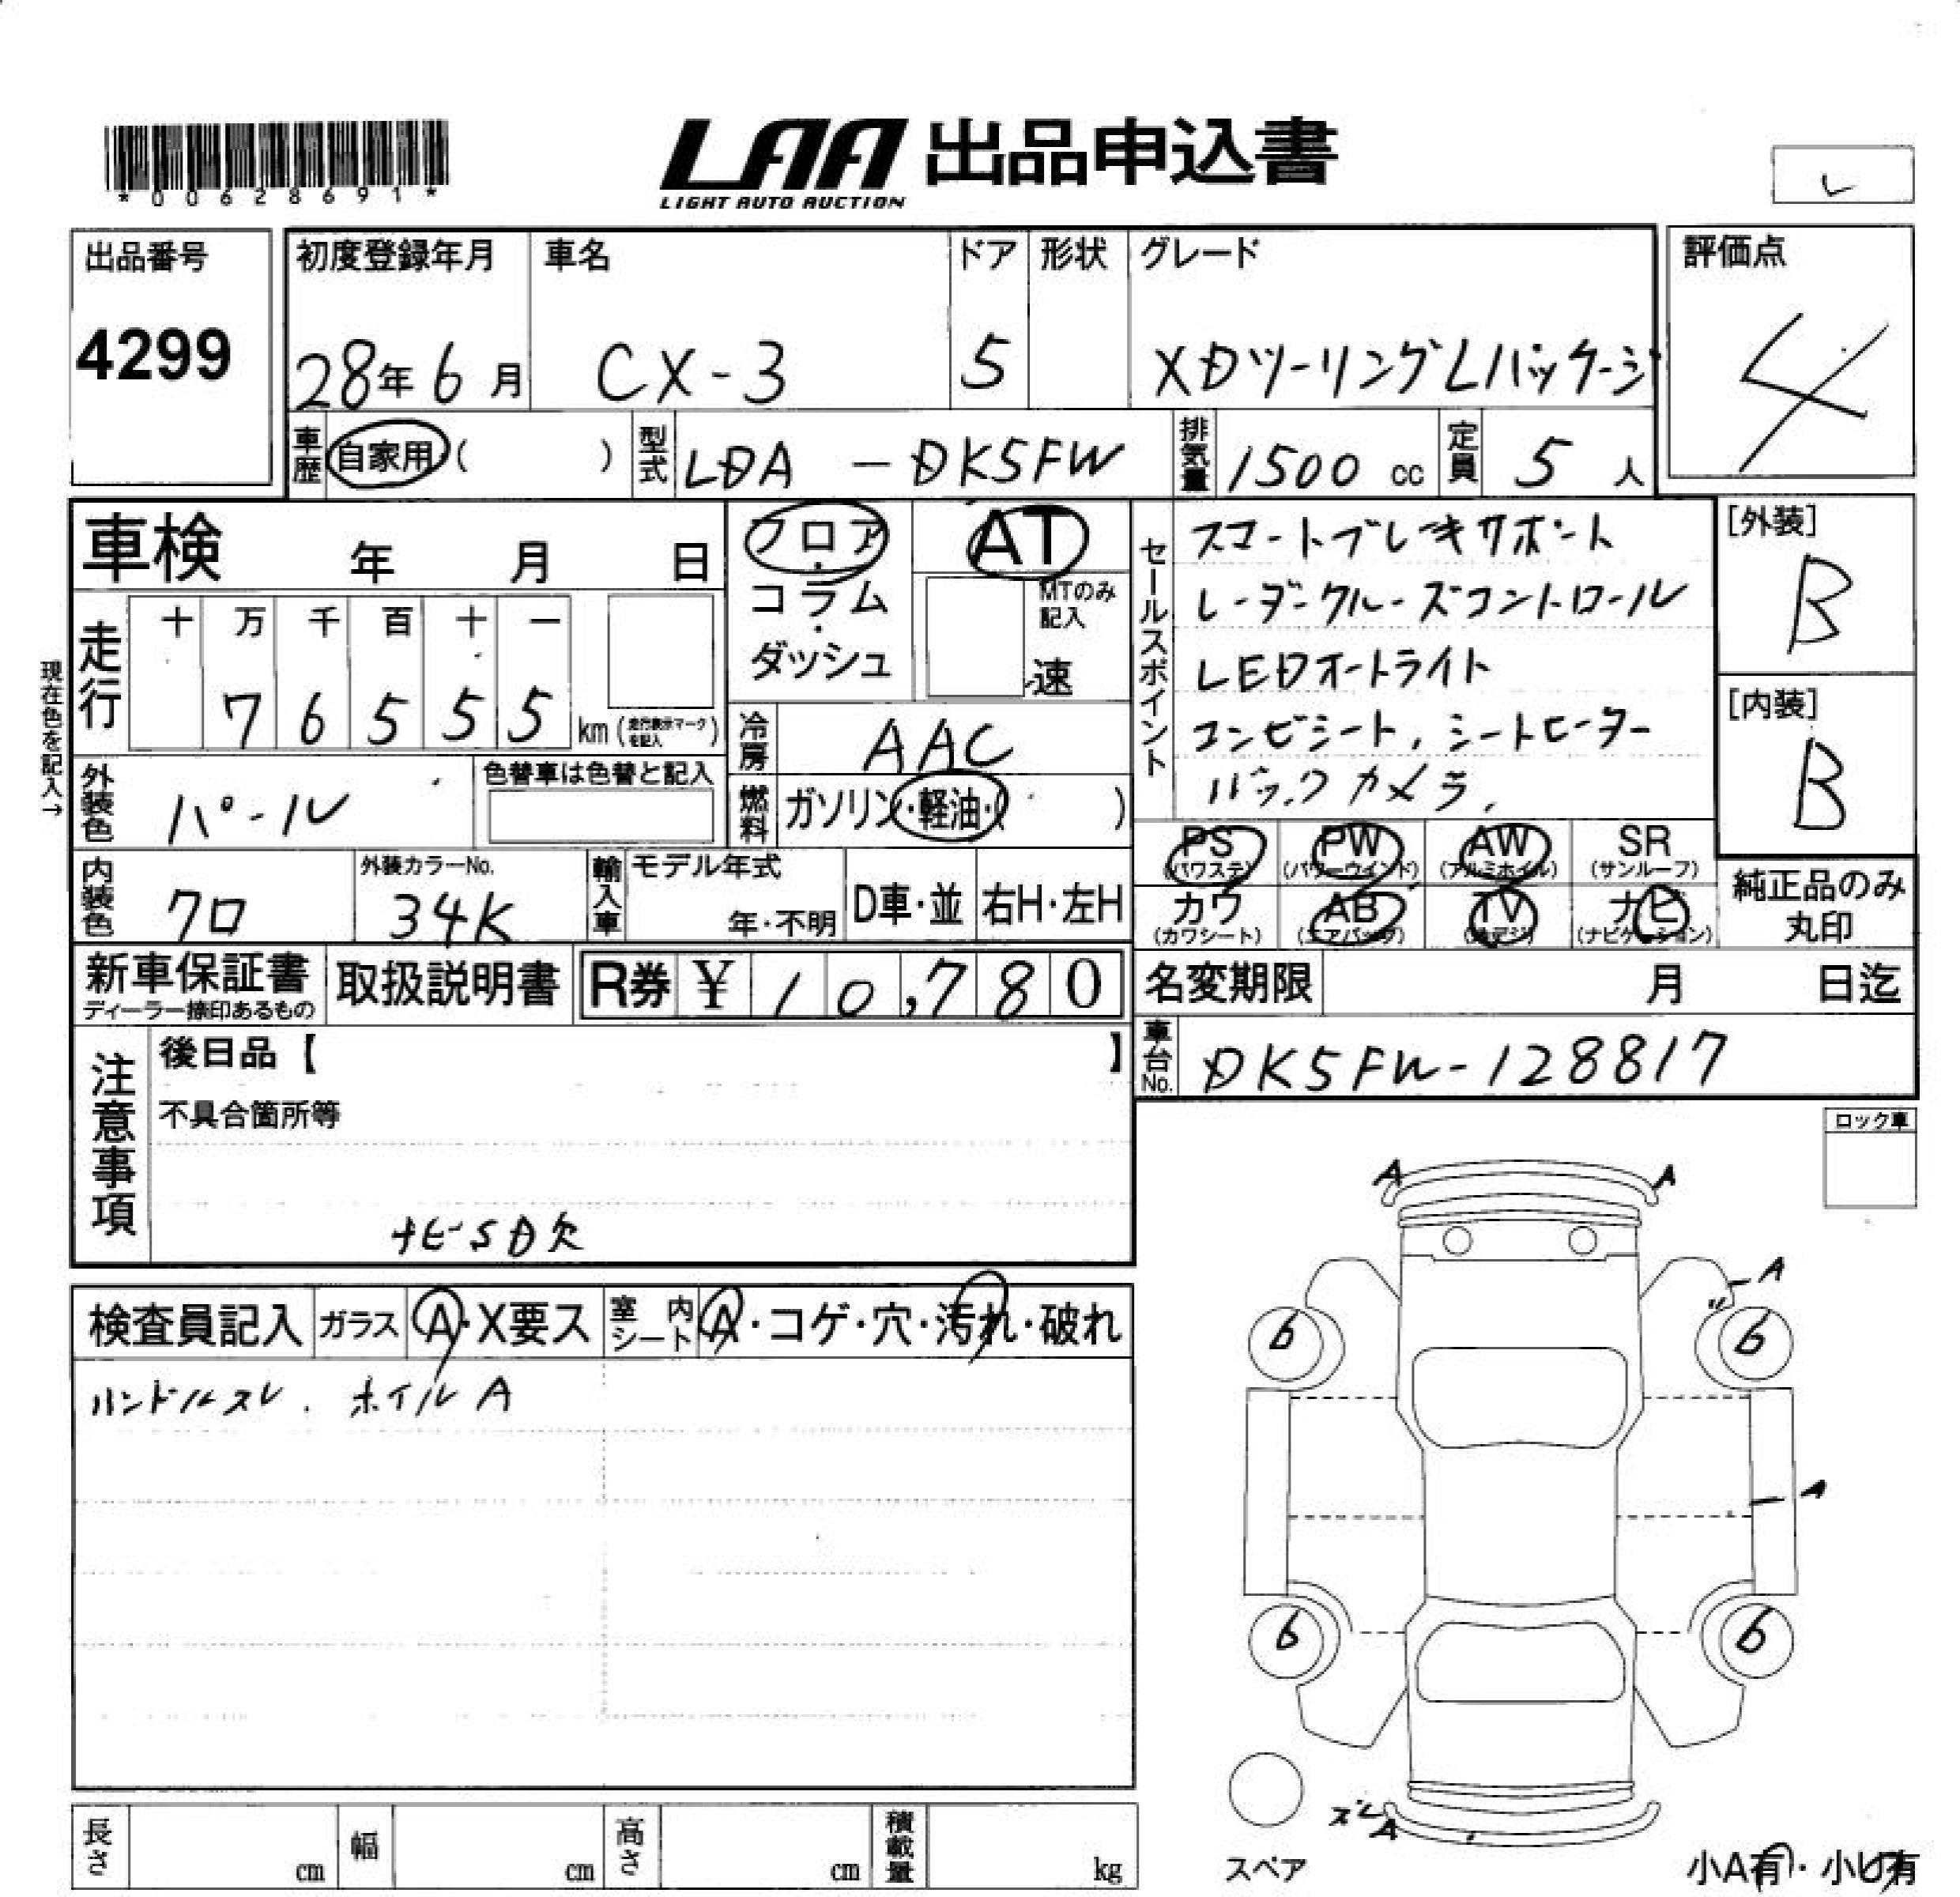 *00628691*
LAA 出品申込書
LIGHT AUTO AUCTION
出品番号
4299
初度登録年月
28年6月
車名
CX-3
ドア
5
形状
グレード
XDツーリングLパッケージ
評価点
4
車歴
自家用 ( )
型式
LDA - DK5FW
排気量
1500 cc
定員
5 人
車検 年 月 日
フロア・コラム・ダッシュ
AT
MTのみ記入
速
セールスポイント
スマートブレーキサポート
レーダークルーズコントロール
LEDオートライト
コンビシート, シートヒーター
バックカメラ,
[外装]
B
[内装]
B
現在色を記入→
走行
十 万 千 百 十 一
7 6 5 5 5 km (走行表示マークを記入)
冷房
AAC
外装色
パール
色替車は色替と記入
燃料
ガソリン・軽油・( )
PS (パワステ)
PW (パワーウインド)
AW (アルミホイル)
SR (サンルーフ)
カワ (カワシート)
AB (エアバック)
TV (地デジ)
ナビ (ナビゲーション)
純正品のみ丸印
内装色
クロ
外装カラーNo.
34K
輸入車
モデル年式
年・不明
D車・並
右H・左H
新車保証書
ディーラー捺印あるもの
取扱説明書
R券 ¥ 10,780
名変期限 月 日迄
車台No.
DK5FW-128817
注意事項
後日品【 】
不具合箇所等
ナビSD欠
ロック車
検査員記入
ガラス
A・X要ス
室内シート
A・コゲ・穴・汚れ・破れ
ハンドルスレ. ホイルA
A A
A
〃
6 6
A
6 6
スレ
A
スペア
小A有・小U有
長さ cm
幅 cm
高さ cm
積載量 kg